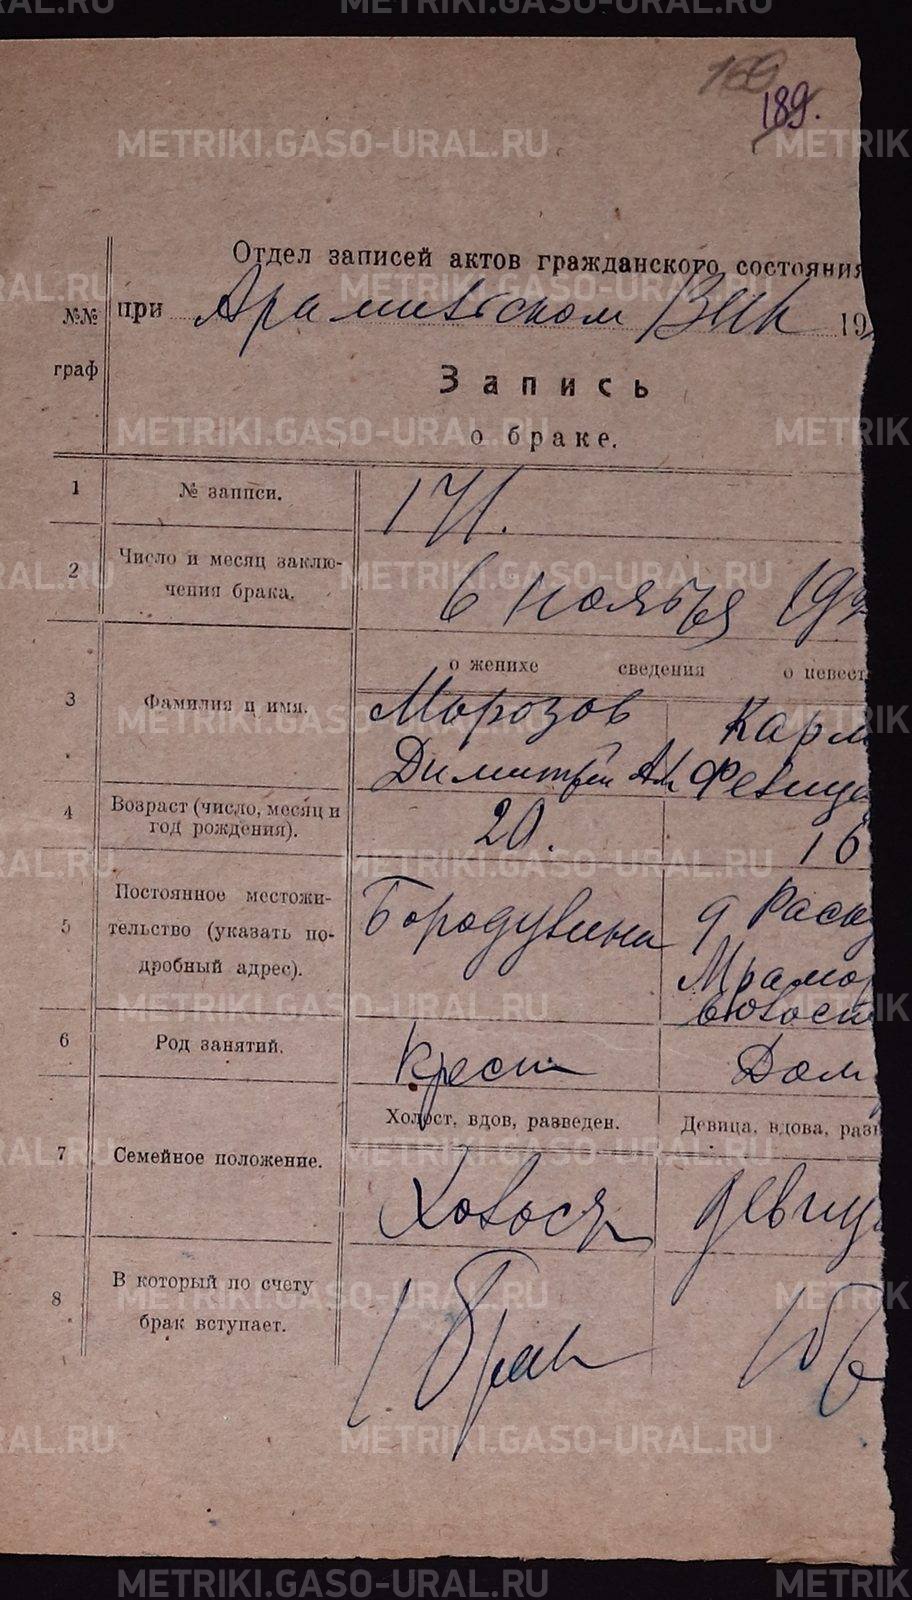 169
189.
Отдел записей актов гражданского состояния
№№ граф
при Арамильском Вик 19
Запись
о браке.
1 № записи. 171.
2 Число и месяц заклю-
чения брака. 6 ноября 192
о женихе сведения о невест
3 Фамилия и имя. Морозов Карм
Димитрий Ал Февица
4 Возраст (число, месяц и
год рождения). 20. 16
5 Постоянное местожи-
тельство (указать по-
дробный адрес). Бородулина д Раску
Мрамор
6 Род занятий. Крест Дом
Холост, вдов, разведен. Девица, вдова, разв
7 Семейное положение. Холост девиц
8 В который по счету
брак вступает. 1 брак 1 б
METRIKI.GASO-URAL.RU